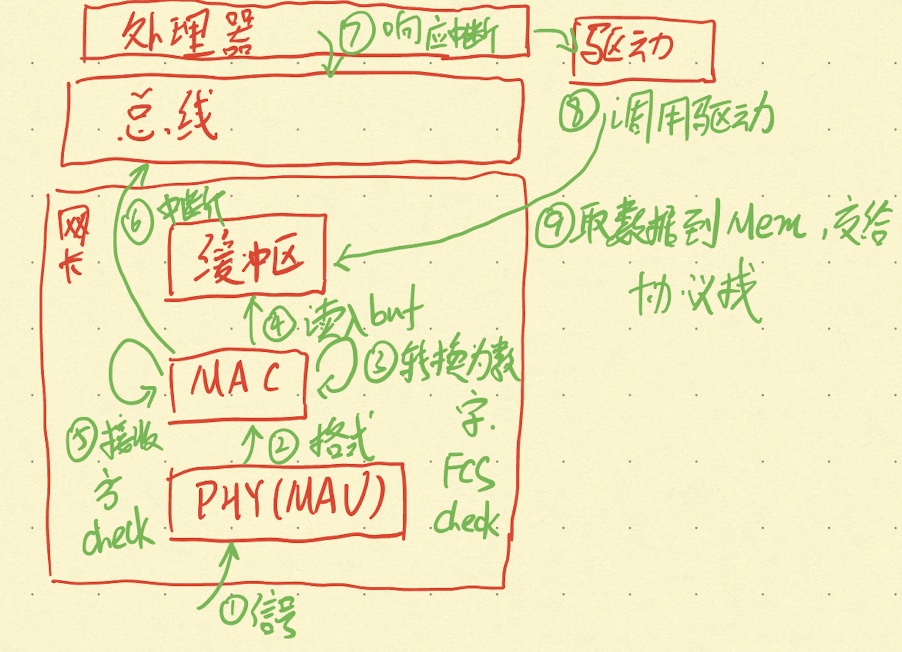 处理器
⑦响应中断
驱动
总线
⑧调用驱动
网卡
⑥中断
缓冲区
⑨取数据到Mem,交给
协议找
④读入buf
MAC
③转换为数
字.
FCS
check
⑤接收
方
check
②格式
PHY(MAU)
①信号